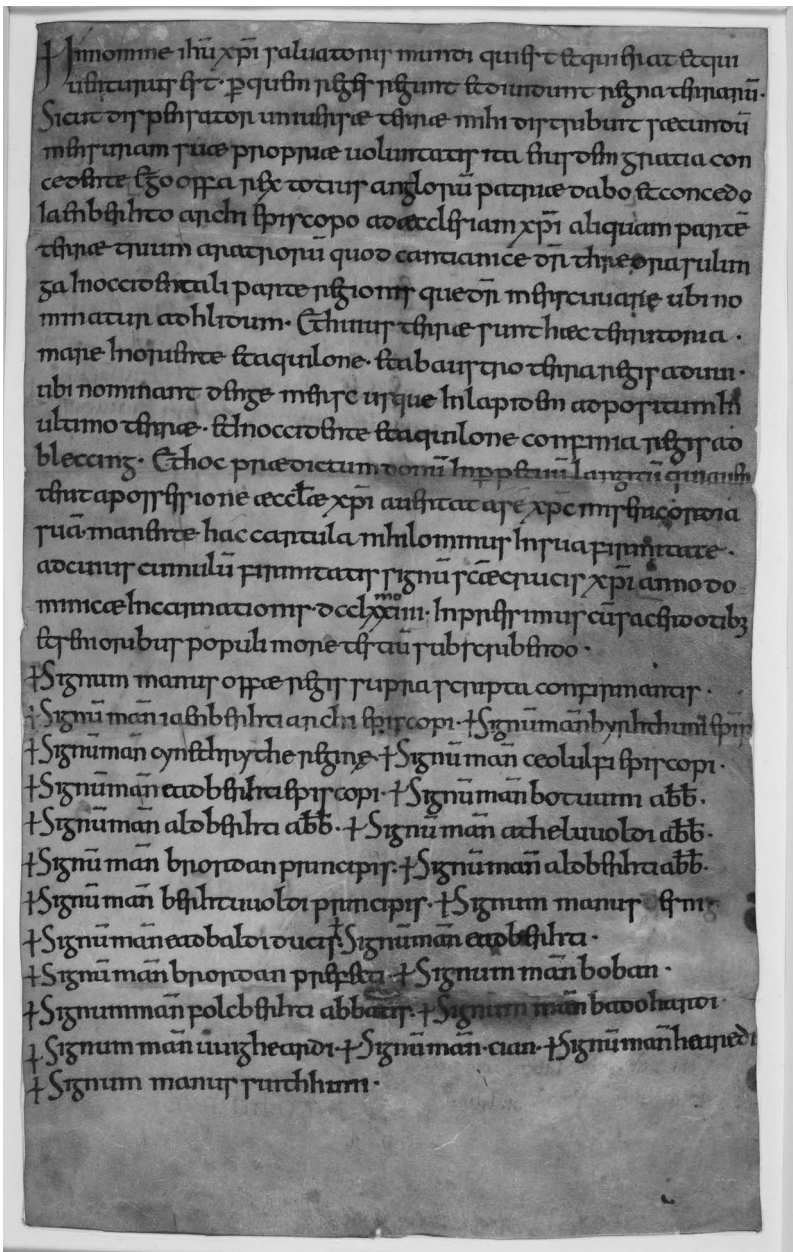 In nomine ihū xp̄i saluatoris mundi qui est et qui erat et qui
uenturus est · per quem reges regunt et diuidunt regna terrarū ·
Sicut dispensator uniuersæ terræ mihi distribuit secundū
mensuram suæ propriæ uoluntatis ita eius dem gratia con
cedente Ego offa rex totius anglorū patriæ dabo et concedo
Iaenbeorhto archi episcopo ad æcclesiam xp̄i aliquam partē
terræ trium aratrorū quod cantianice dr̄ three sulun
ga In occidentali parte regionis que dr̄ mersc uuarie ubi no
minatur ad hlidum · Et huius terræ sunt hæc territoria ·
mare In oriente et aquilone · et ab austro terra regis aduui ·
ubi nominant denge mersc usque In lapidem adpositum In
ultimo terræ · et In occidente et aquilone confinia regis ad
bleccing · Et hoc prædictum donū Inperpetuū largitū qui auser
rerit a possessione æccl̄æ xp̄i auferat a se xp̄c misericordia
suā · manente hac cartula nihilominus In sua firmitate ·
ad cuius cumulū firmitatis signū sc̄æ crucis xp̄i anno do
minicæ Incarnationis · dcclxxiiii · Inpressimus cū sacerdotibꝫ
et senioribus populi more testiū subscribendo ·
+Signum manus offæ regis supra scripta confirmantis ·
+Signū man̄ iaenberhti archi episcopi · +Signū man̄
+Signū man̄ cynethrythe regine · +Signū man̄ ceolulfi episcopi ·
+Signū man̄ eadberhti episcopi · +Signū man̄ botuuini ab̄b̄ ·
+Signū man̄ aldberhti ab̄b̄ · +Signū man̄ atheluuoldi ab̄b̄ ·
+Signū man̄ brordan principis · +Signū man̄ aldberhti ab̄b̄ ·
+Signū man̄ berhtuuoldi principis · +Signum manus esni ·
+Signū man̄ eadbaldi ducis +Signū man̄ eadberhti ·
+Signū man̄ brordan prefecti · +Signum man̄ boban ·
+Signum man̄ abbatis · +Signum man̄ badohardi ·
+Signum man̄ uuigheardi · +Signū man̄ · cian · +Signū man̄ heariedi
+Signum manus